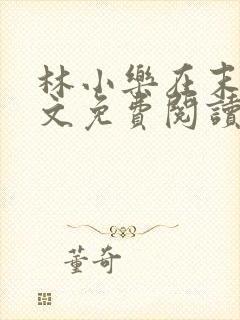 林小樂在末
文免費閱讀
董奇